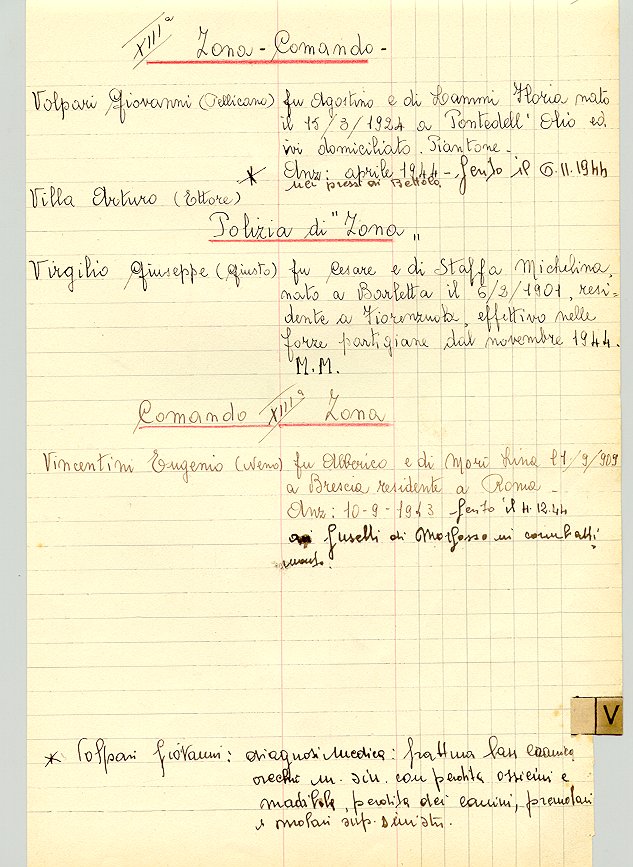 XIIIª Zona - Comando -
Volpari Giovanni (Pellicano) fu Agostino e di Lammi Ilaria nato
il 15/3/1924 a Pontedell'Olio ed
ivi domiciliato. Piantone -
* Anz: aprile 1944 - ferito il 6.11.1944
nei pressi di Bettola
Villa Arturo (Ettore)
Polizia di "Zona„
Virgilio Giuseppe (Giusto) fu Cesare e di Staffa Michelina,
nato a Barletta il 6/2/1901, resi=
dente a Fiorenzuola, effettivo nelle
forze partigiane dal novembre 1944.
M.M.
Comando XIIIª Zona
Vincentini Eugenio (Neno) fu Alberico e di Mori Lina 17/9/909
a Brescia residente a Roma -
Anz: 10-9-1943 ferito il 4.12.44
ai Guselli di Morfasso in combatti
mento.
V
* Volpari Giovanni: diagnosi medica: frattura
sin. con perdita ossicini e
madibola, perdita dei canini, premolari
e molari sup. sinistri.